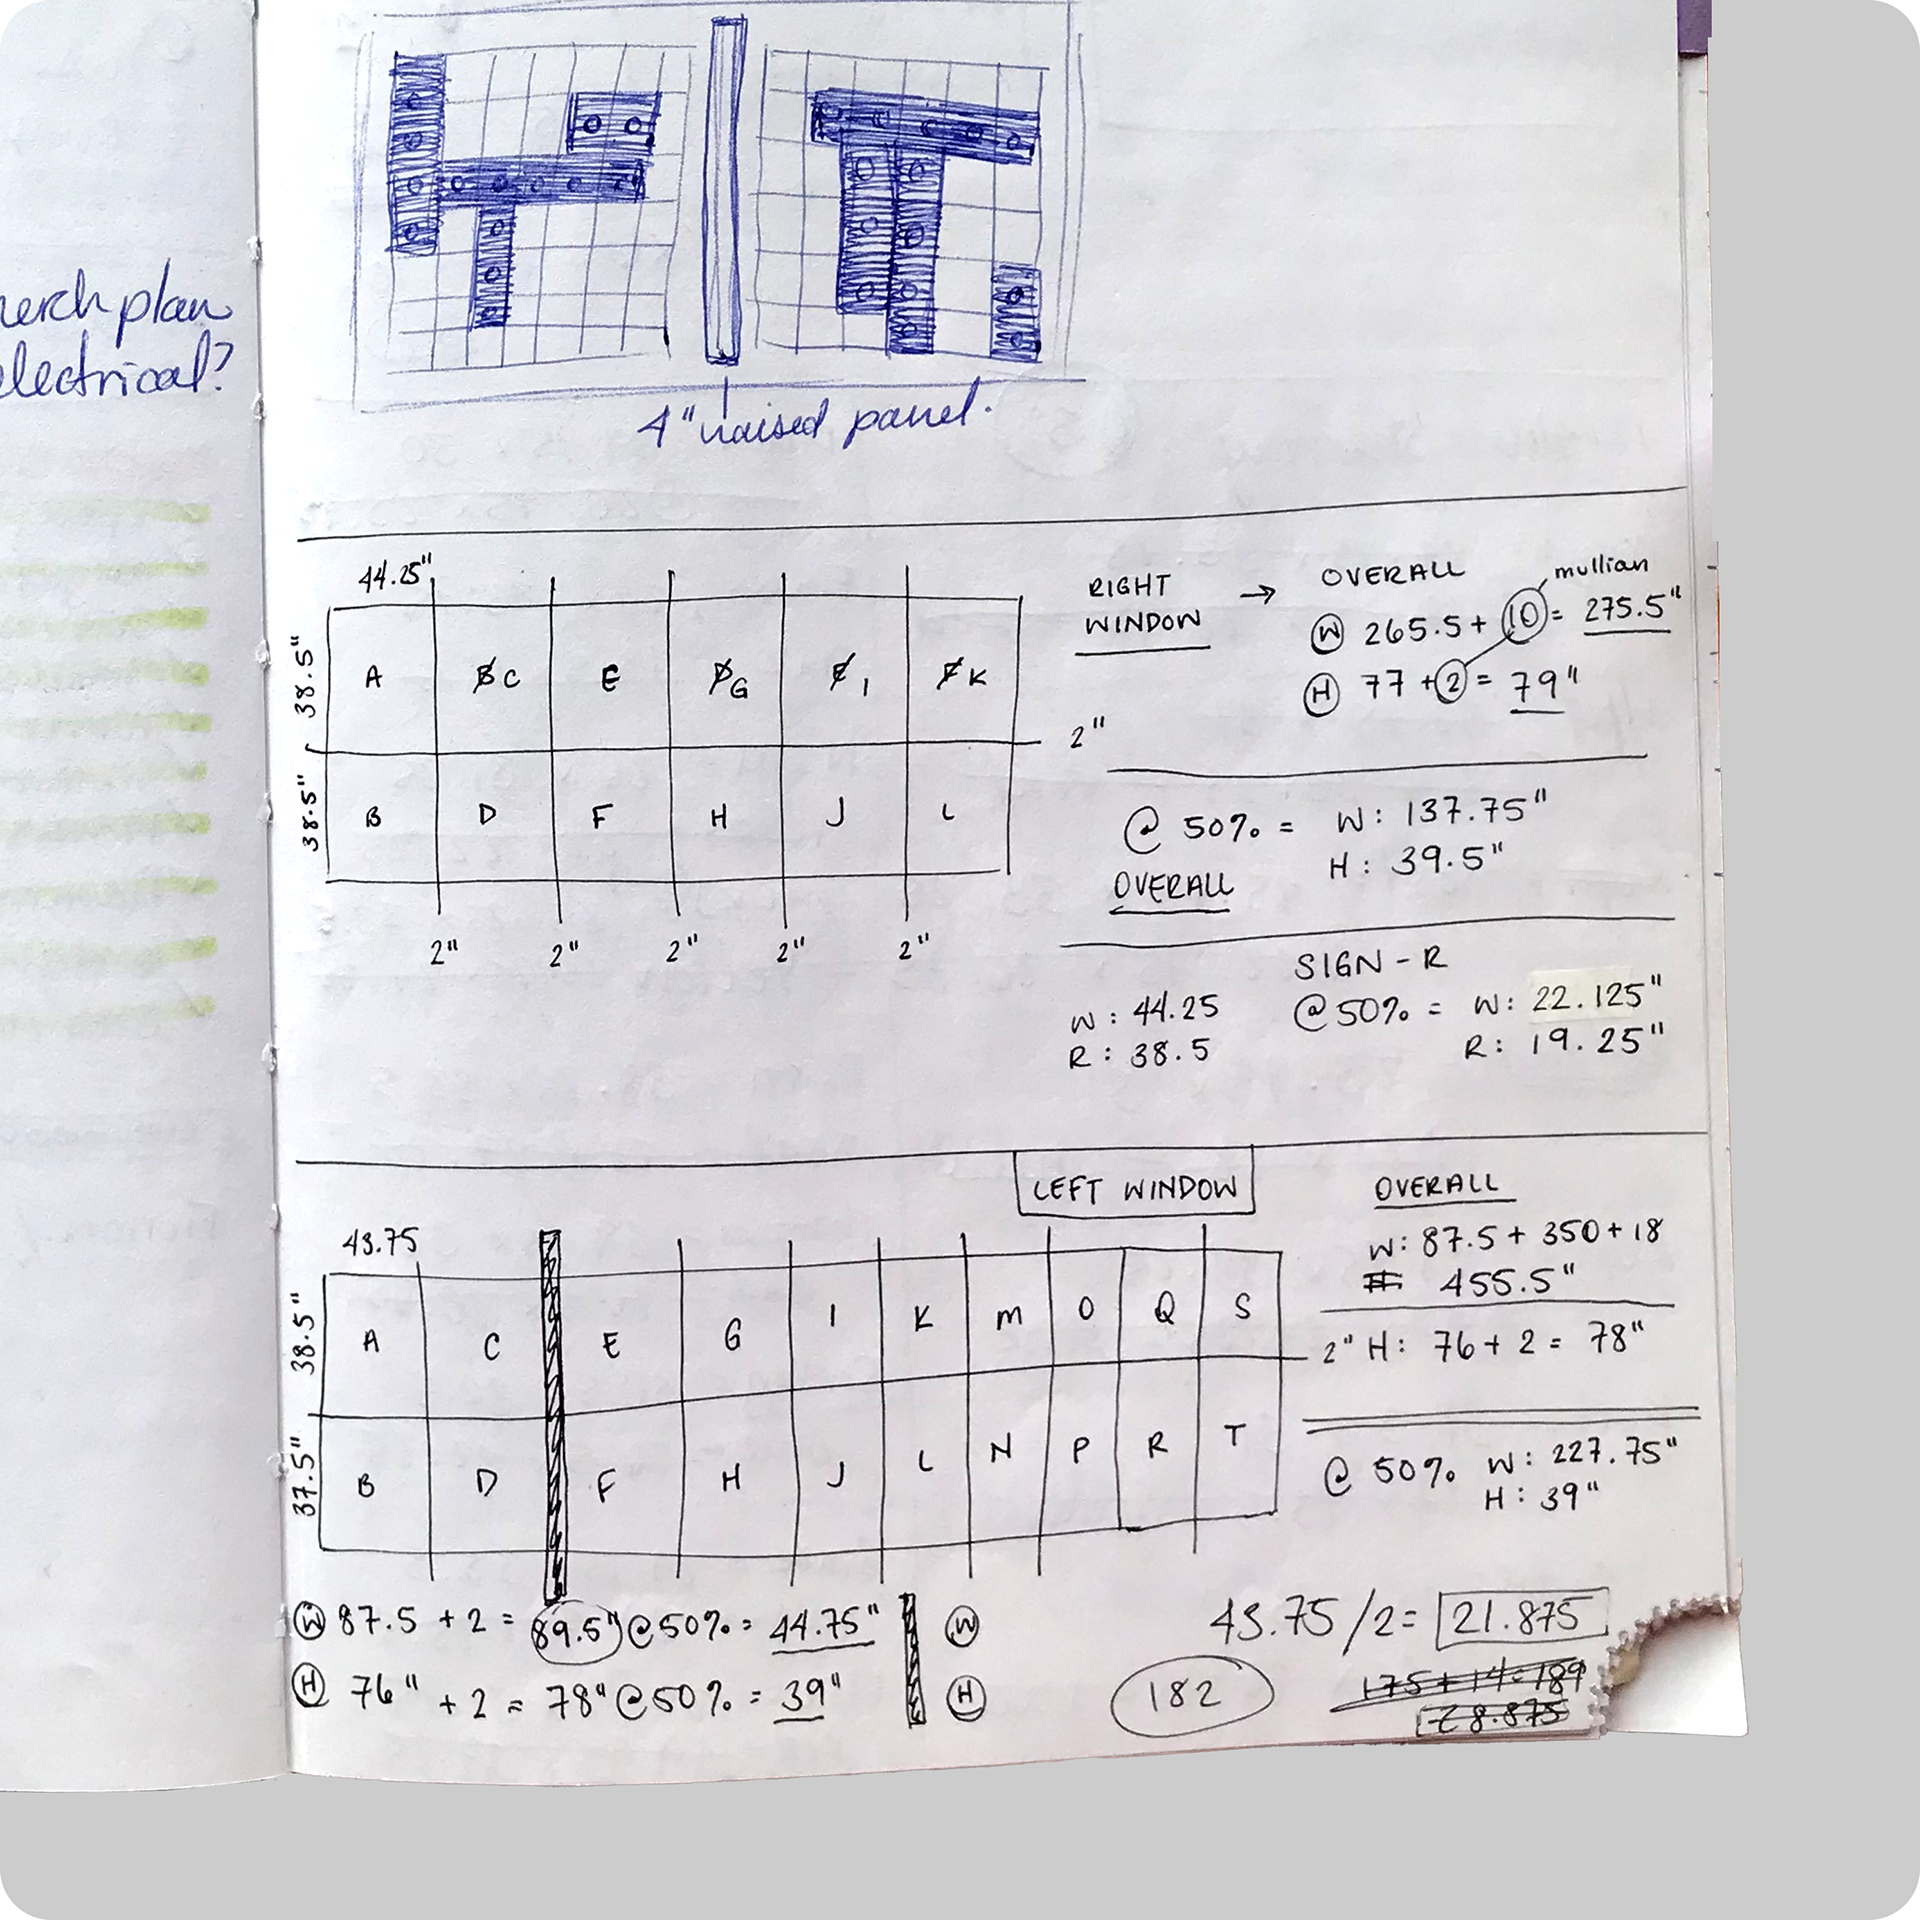 erch plan
electrical?
4" raised panel.
44.25"
38.5"
38.5"
A B C E D G F I K
B D F H J L
2"
2" 2" 2" 2" 2"
RIGHT
WINDOW
→
OVERALL
mullian
W 265.5 + 10 = 275.5"
H 77 + 2 = 79"
@ 50% = W: 137.75"
H: 39.5"
OVERALL
SIGN - R
W: 44.25
R: 38.5
@ 50% = W: 22.125"
R: 19.25"
LEFT WINDOW
43.75
38.5"
37.5"
A C E G I K M O Q S
B D F H J L N P R T
OVERALL
W: 87.5 + 350 + 18
455.5"
2" H: 76 + 2 = 78"
@ 50% W: 227.75"
H: 39"
W 87.5 + 2 = 89.5" @ 50% = 44.75"
H 76" + 2 = 78" @ 50% = 39"
W
H
43.75 / 2 = 21.875
182
175 + 14 = 189